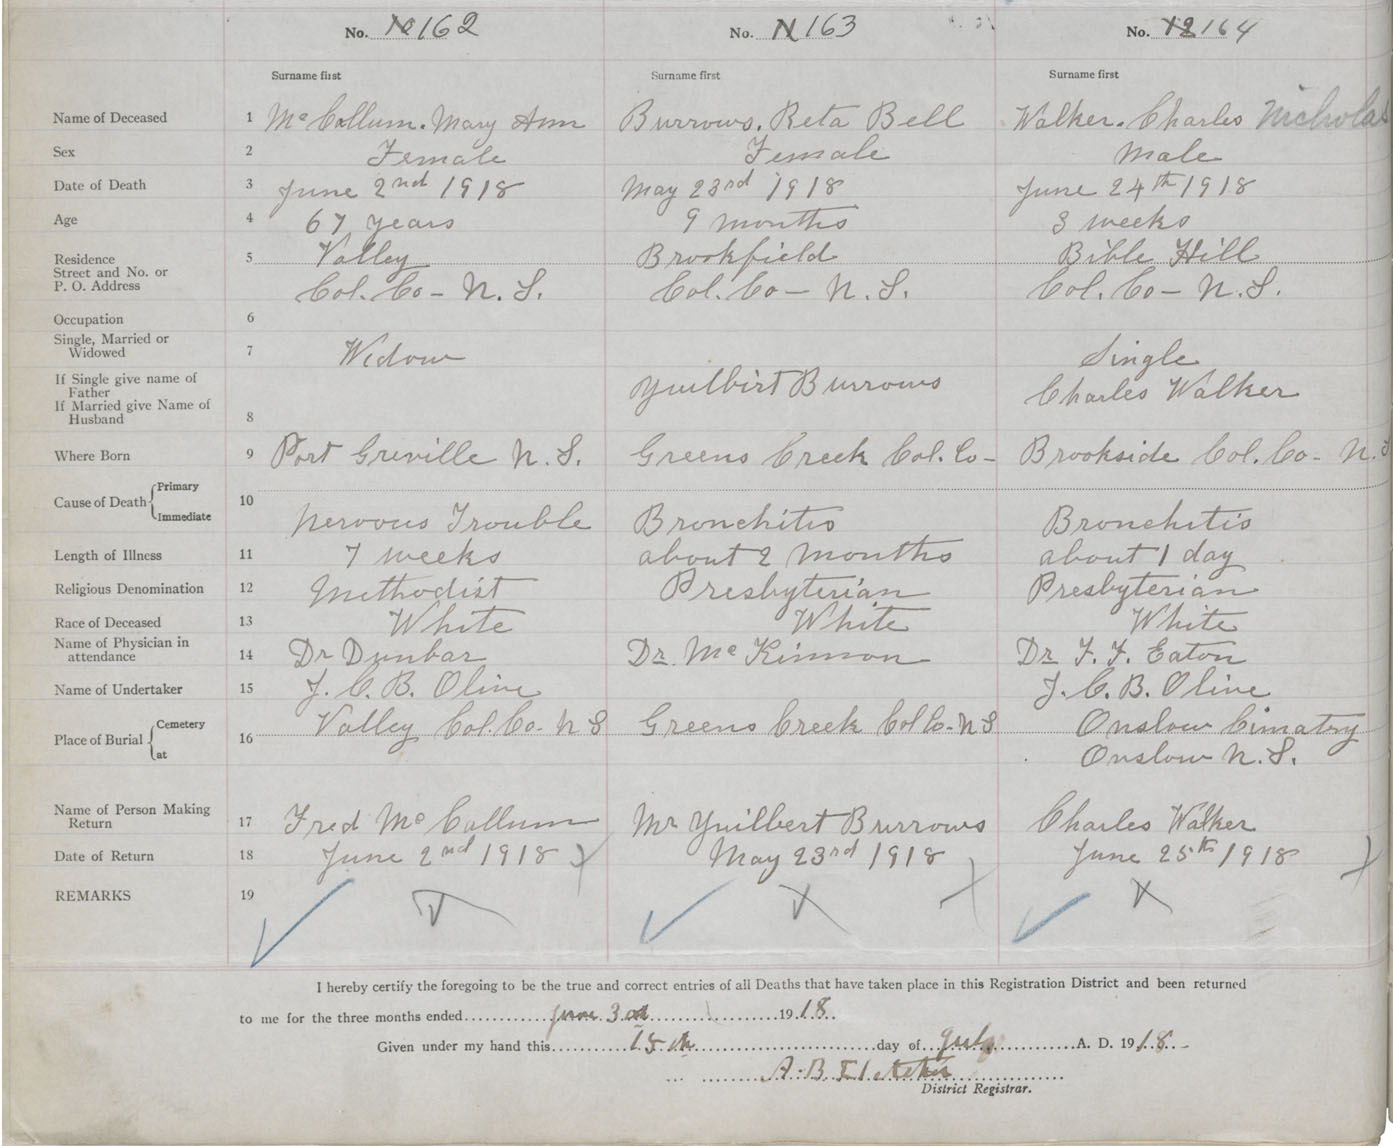 No. 10 162 No. 11 163 No. 12 164
Surname first Surname first Surname first
Name of Deceased 1 McCallum. Mary Ann Burrows. Reta Bell Walker. Charles Nicholas
Sex 2 Female Female Male
Date of Death 3 June 2nd 1918 May 23rd 1918 June 24th 1918
Age 4 67 years 9 months 3 weeks
Residence 5 Valley Brookfield Bible Hill
Street and No. or
P. O. Address Col. Co - N. S. Col. Co - N. S. Col. Co - N. S.
Occupation 6
Single, Married or
Widowed 7 Widow Single
If Single give name of
Father Yuilbirt Burrows Charles Walker
If Married give Name of
Husband 8
Where Born 9 Port Greville N. S. Greens Creek Col. Co - Brookside Col. Co - N. S
Primary
Cause of Death 10
Immediate Nervous Trouble Bronchitis Bronchitis
Length of Illness 11 7 weeks about 2 months about 1 day
Religious Denomination 12 Methodist Presbyterian Presbyterian
Race of Deceased 13 White White White
Name of Physician in
attendance 14 Dr Dunbar Dr. Mc Kinnon Dr F. F. Eaton
Name of Undertaker 15 J. C. B. Olive J. C. B. Olive
Cemetery Valley Col. Co - N S Greens Creek Col Co - N S Onslow Cimatry
Place of Burial 16
at Onslow N. S.
Name of Person Making
Return 17 Fred McCallum Mr Yuilbert Burrows Charles Walker
Date of Return 18 June 2nd 1918 May 23rd 1918 June 25th 1918
REMARKS 19
I hereby certify the foregoing to be the true and correct entries of all Deaths that have taken place in this Registration District and been returned
to me for the three months ended June 30th 1918.
Given under my hand this 15th day of July A. D. 1918.
A. B. Fletcher
District Registrar.